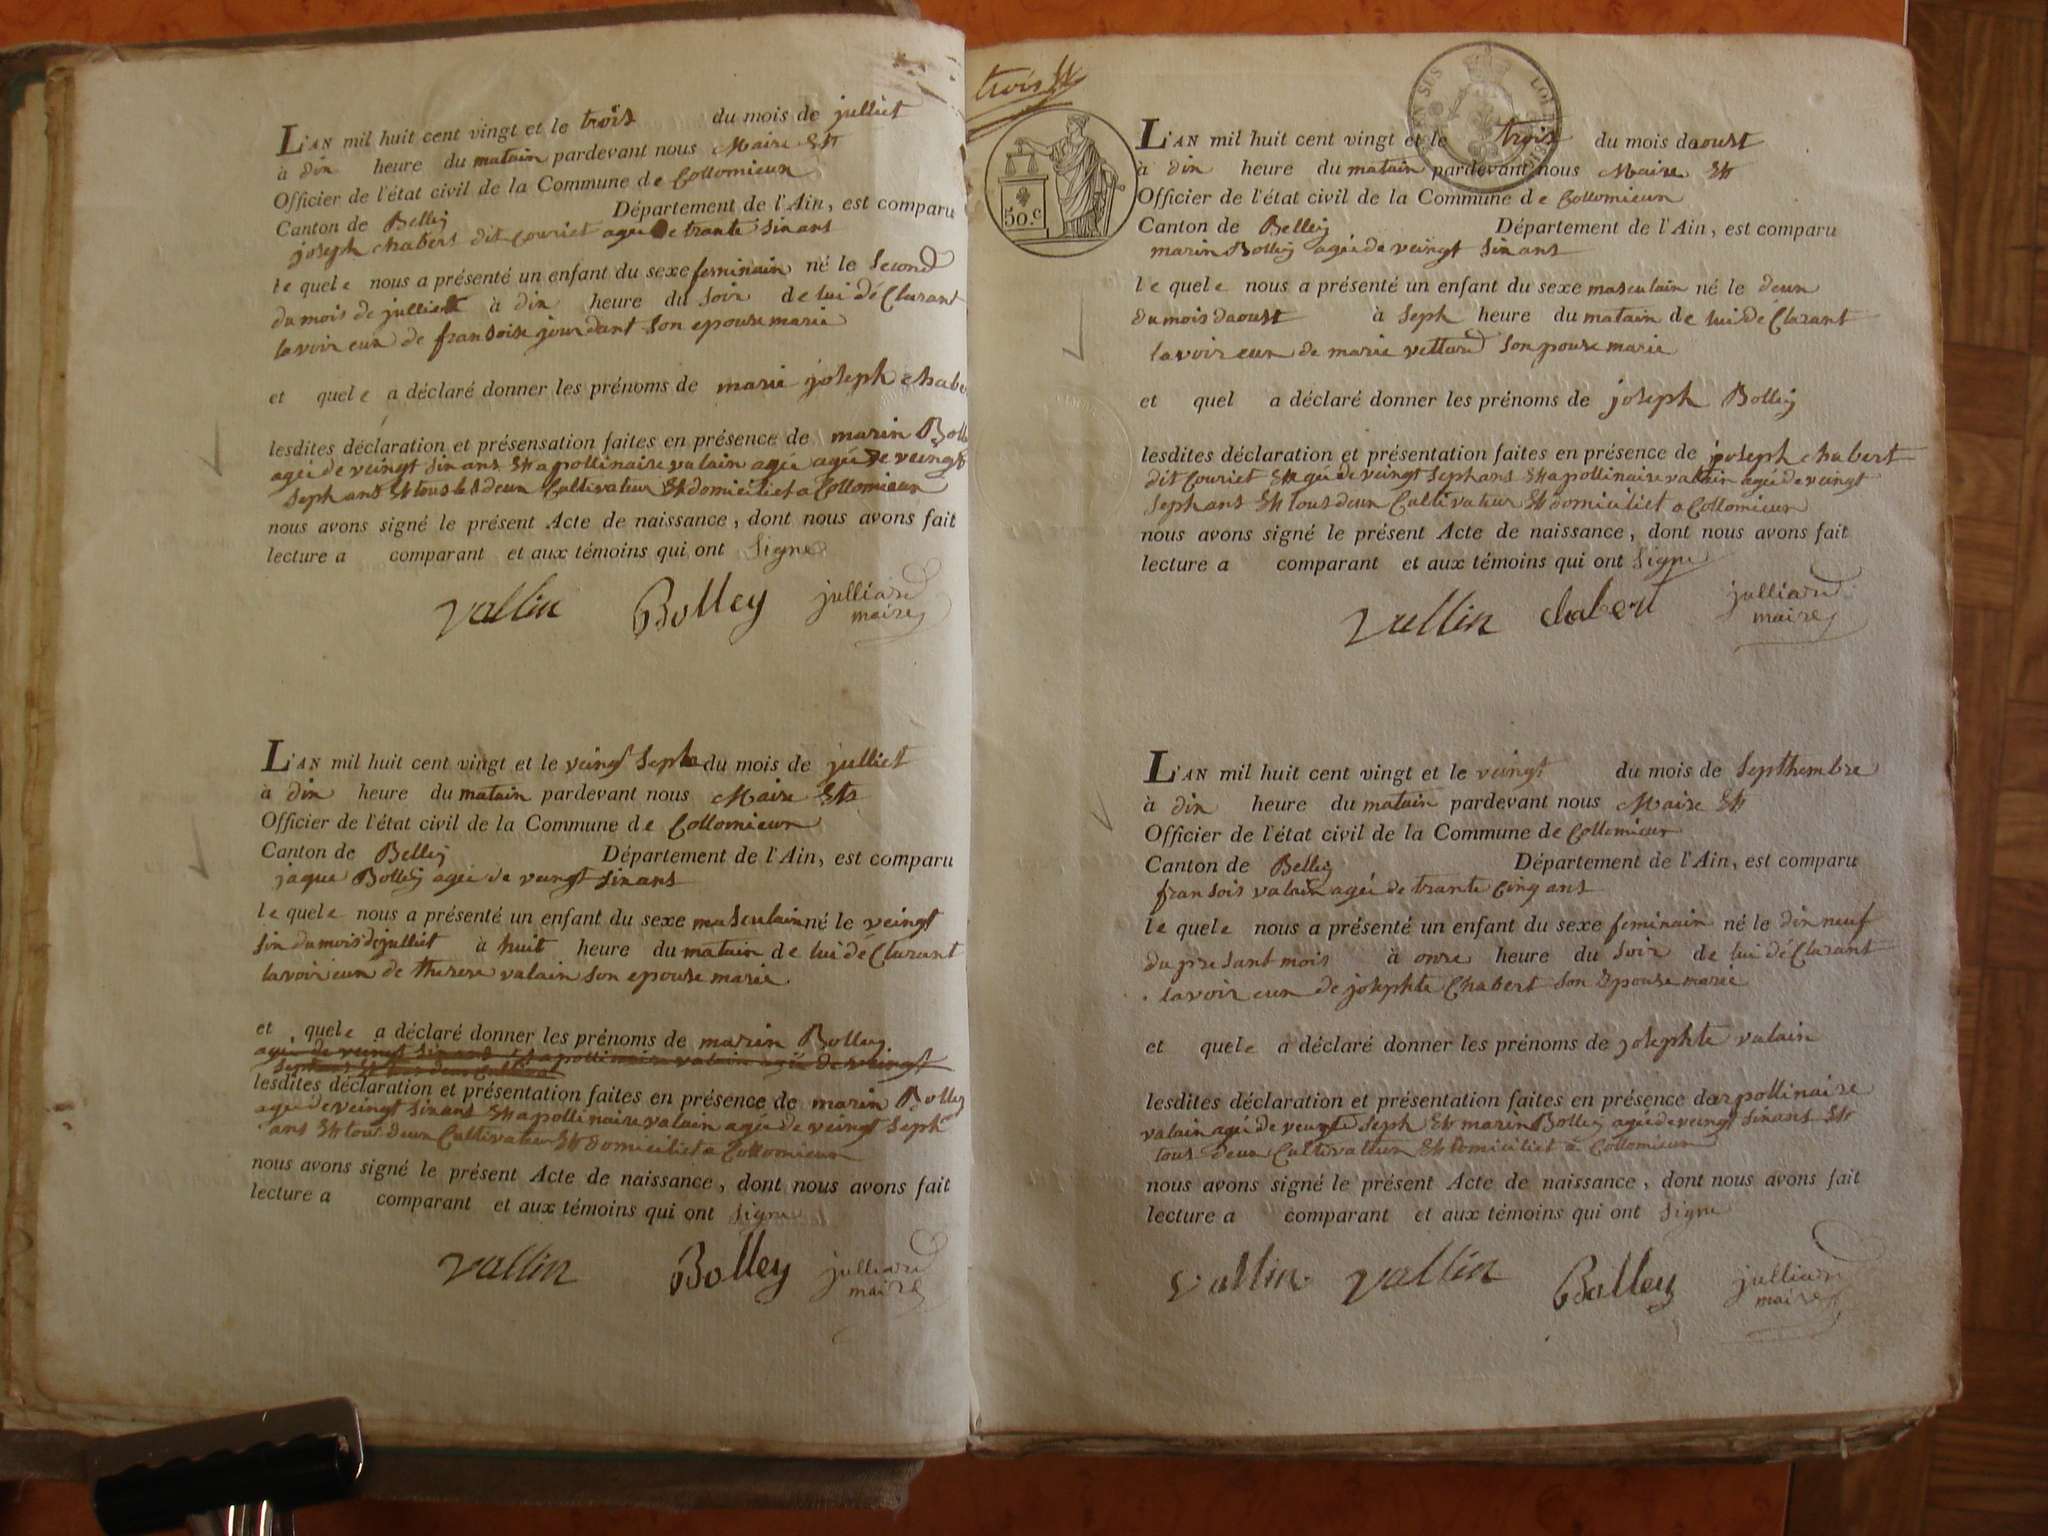 L'AN mil huit cent vingt et le trois du mois de julliet
à din heure du matain pardevant nous Maire Et
Officier de l'état civil de la Commune de Collomieun
Canton de Belley Département de l'Ain, est comparu
joseph chabert dit Couriet ageé de trante sin ans
le quele nous a présenté un enfant du sexe feminain né le second
du mois de julliet à din heure du soir de lui déClarant
lavoir eun de fransoise jourdant son epouse marie
et quele a déclaré donner les prénoms de marie joseph chabe
lesdites déclaration et présensation faites en présence de marin Boll
ageé de veingt sin ans Et apollinaire valain ageé ageé de veingt
seph ans Et tous les deun Cultivateur Et domiciliet a Collomieun
nous avons signé le présent Acte de naissance, dont nous avons fait
lecture a comparant et aux témoins qui ont signe
vallin Bolley julliand
maire
L'AN mil huit cent vingt et le veingt seph du mois de julliet
à din heure du matain pardevant nous Maire Et
Officier de l'état civil de la Commune de Collomieun
Canton de Belley Département de l'Ain, est comparu
jaque Bolley ageé de veingt sin ans
le quele nous a présenté un enfant du sexe masculain né le veingt
sin du mois de julliet à huit heure du matain de lui déClarant
lavoir eun de therese valain son epouse marie
et quele a déclaré donner les prénoms de marin Bolley
ageé de veingt sin ans Et apollinaire valain ageé de veingt
seph ans Et tous deun Cultivat
lesdites déclaration et présentation faites en présence de marin Bolley
ageé de veingt sin ans Et apollinaire valain ageé de veingt seph
ans Et tous deun Cultivateur Et domiciliet a Collomieun
nous avons signé le présent Acte de naissance, dont nous avons fait
lecture a comparant et aux témoins qui ont signe
vallin Bolley julliand
maire
trois
50.c
L'AN mil huit cent vingt et le trois du mois daoust
à din heure du matain pardevant nous Maire Et
Officier de l'état civil de la Commune de Collomieun
Canton de Belley Département de l'Ain, est comparu
marin Bolley ageé de veingt sin ans
le quele nous a présenté un enfant du sexe masculain né le deun
du mois daoust à seph heure du matain de lui déClarant
lavoir eun de marie vettard son pouse marie
et quel a déclaré donner les prénoms de joseph Bolley
lesdites déclaration et présentation faites en présence de joseph chabert
dit Couriet ageé de veingt seph ans Et apollinaire valain ageé de veingt
seph ans Et tous deun Cultivateur Et domiciliet a Collomieun
nous avons signé le présent Acte de naissance, dont nous avons fait
lecture a comparant et aux témoins qui ont signe
vallin chabert julliand
maire
L'AN mil huit cent vingt et le veingt du mois de septhembre
à din heure du matain pardevant nous Maire Et
Officier de l'état civil de la Commune de Collomieun
Canton de Belley Département de l'Ain, est comparu
fransois valain ageé de trante cinq ans
le quele nous a présenté un enfant du sexe feminain né le din neuf
du presant mois à onse heure du soir de lui déClarant
lavoir eun de josephte Chabert son Epouse marie
et quele a déclaré donner les prénoms de josephte valain
lesdites déclaration et présentation faites en présence de apollinaire
valain ageé de veingt seph Et marin Bolley ageé de veingt sin ans Et
tous deun Cultivateur Et domiciliet a Collomieun
nous avons signé le présent Acte de naissance, dont nous avons fait
lecture a comparant et aux témoins qui ont signe
vallin vallin Bolley julliand
maire